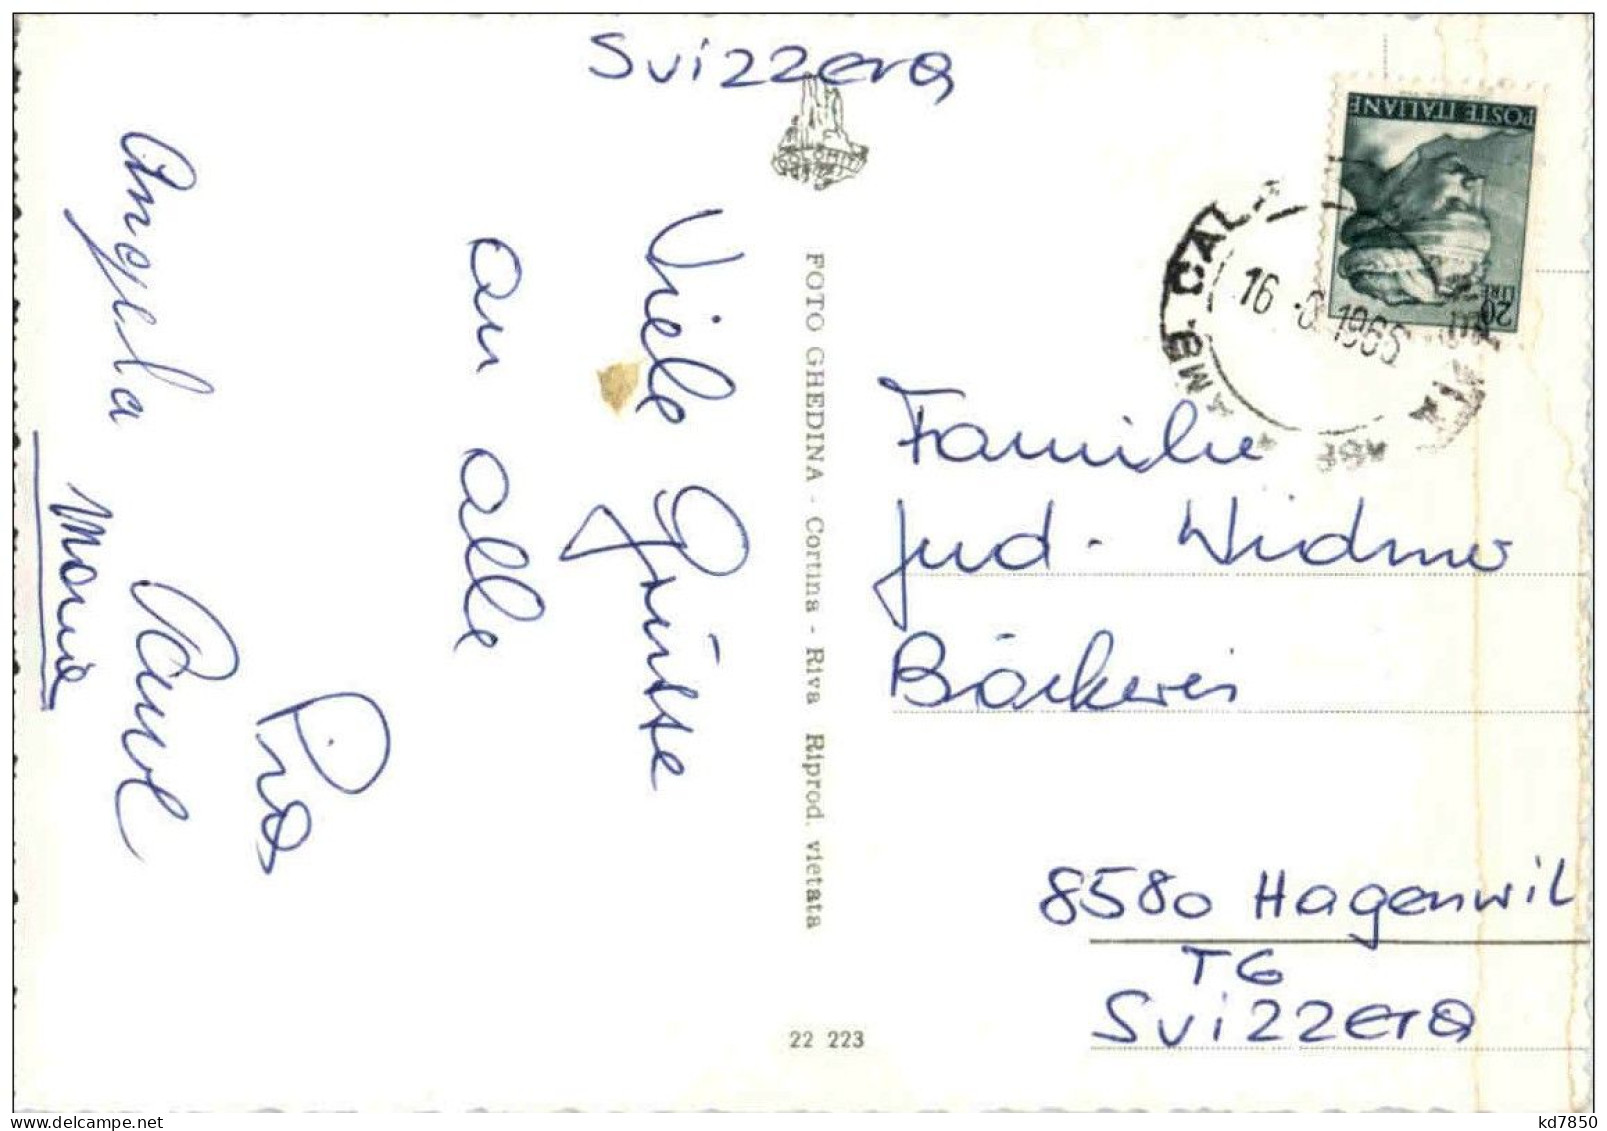 Svizzera
Viele Grüsse
an alle
Pia
Angela
Maria
FOTO GHEDINA - Cortina - Riva Riprod. vietata
22 223
POSTE ITALIANE
LIRE
20
AMB. CAL
16 1965
Familie
Jud - Widmer
Bäckerei
8580 Hagenwil
TG
Svizzera
kd7850